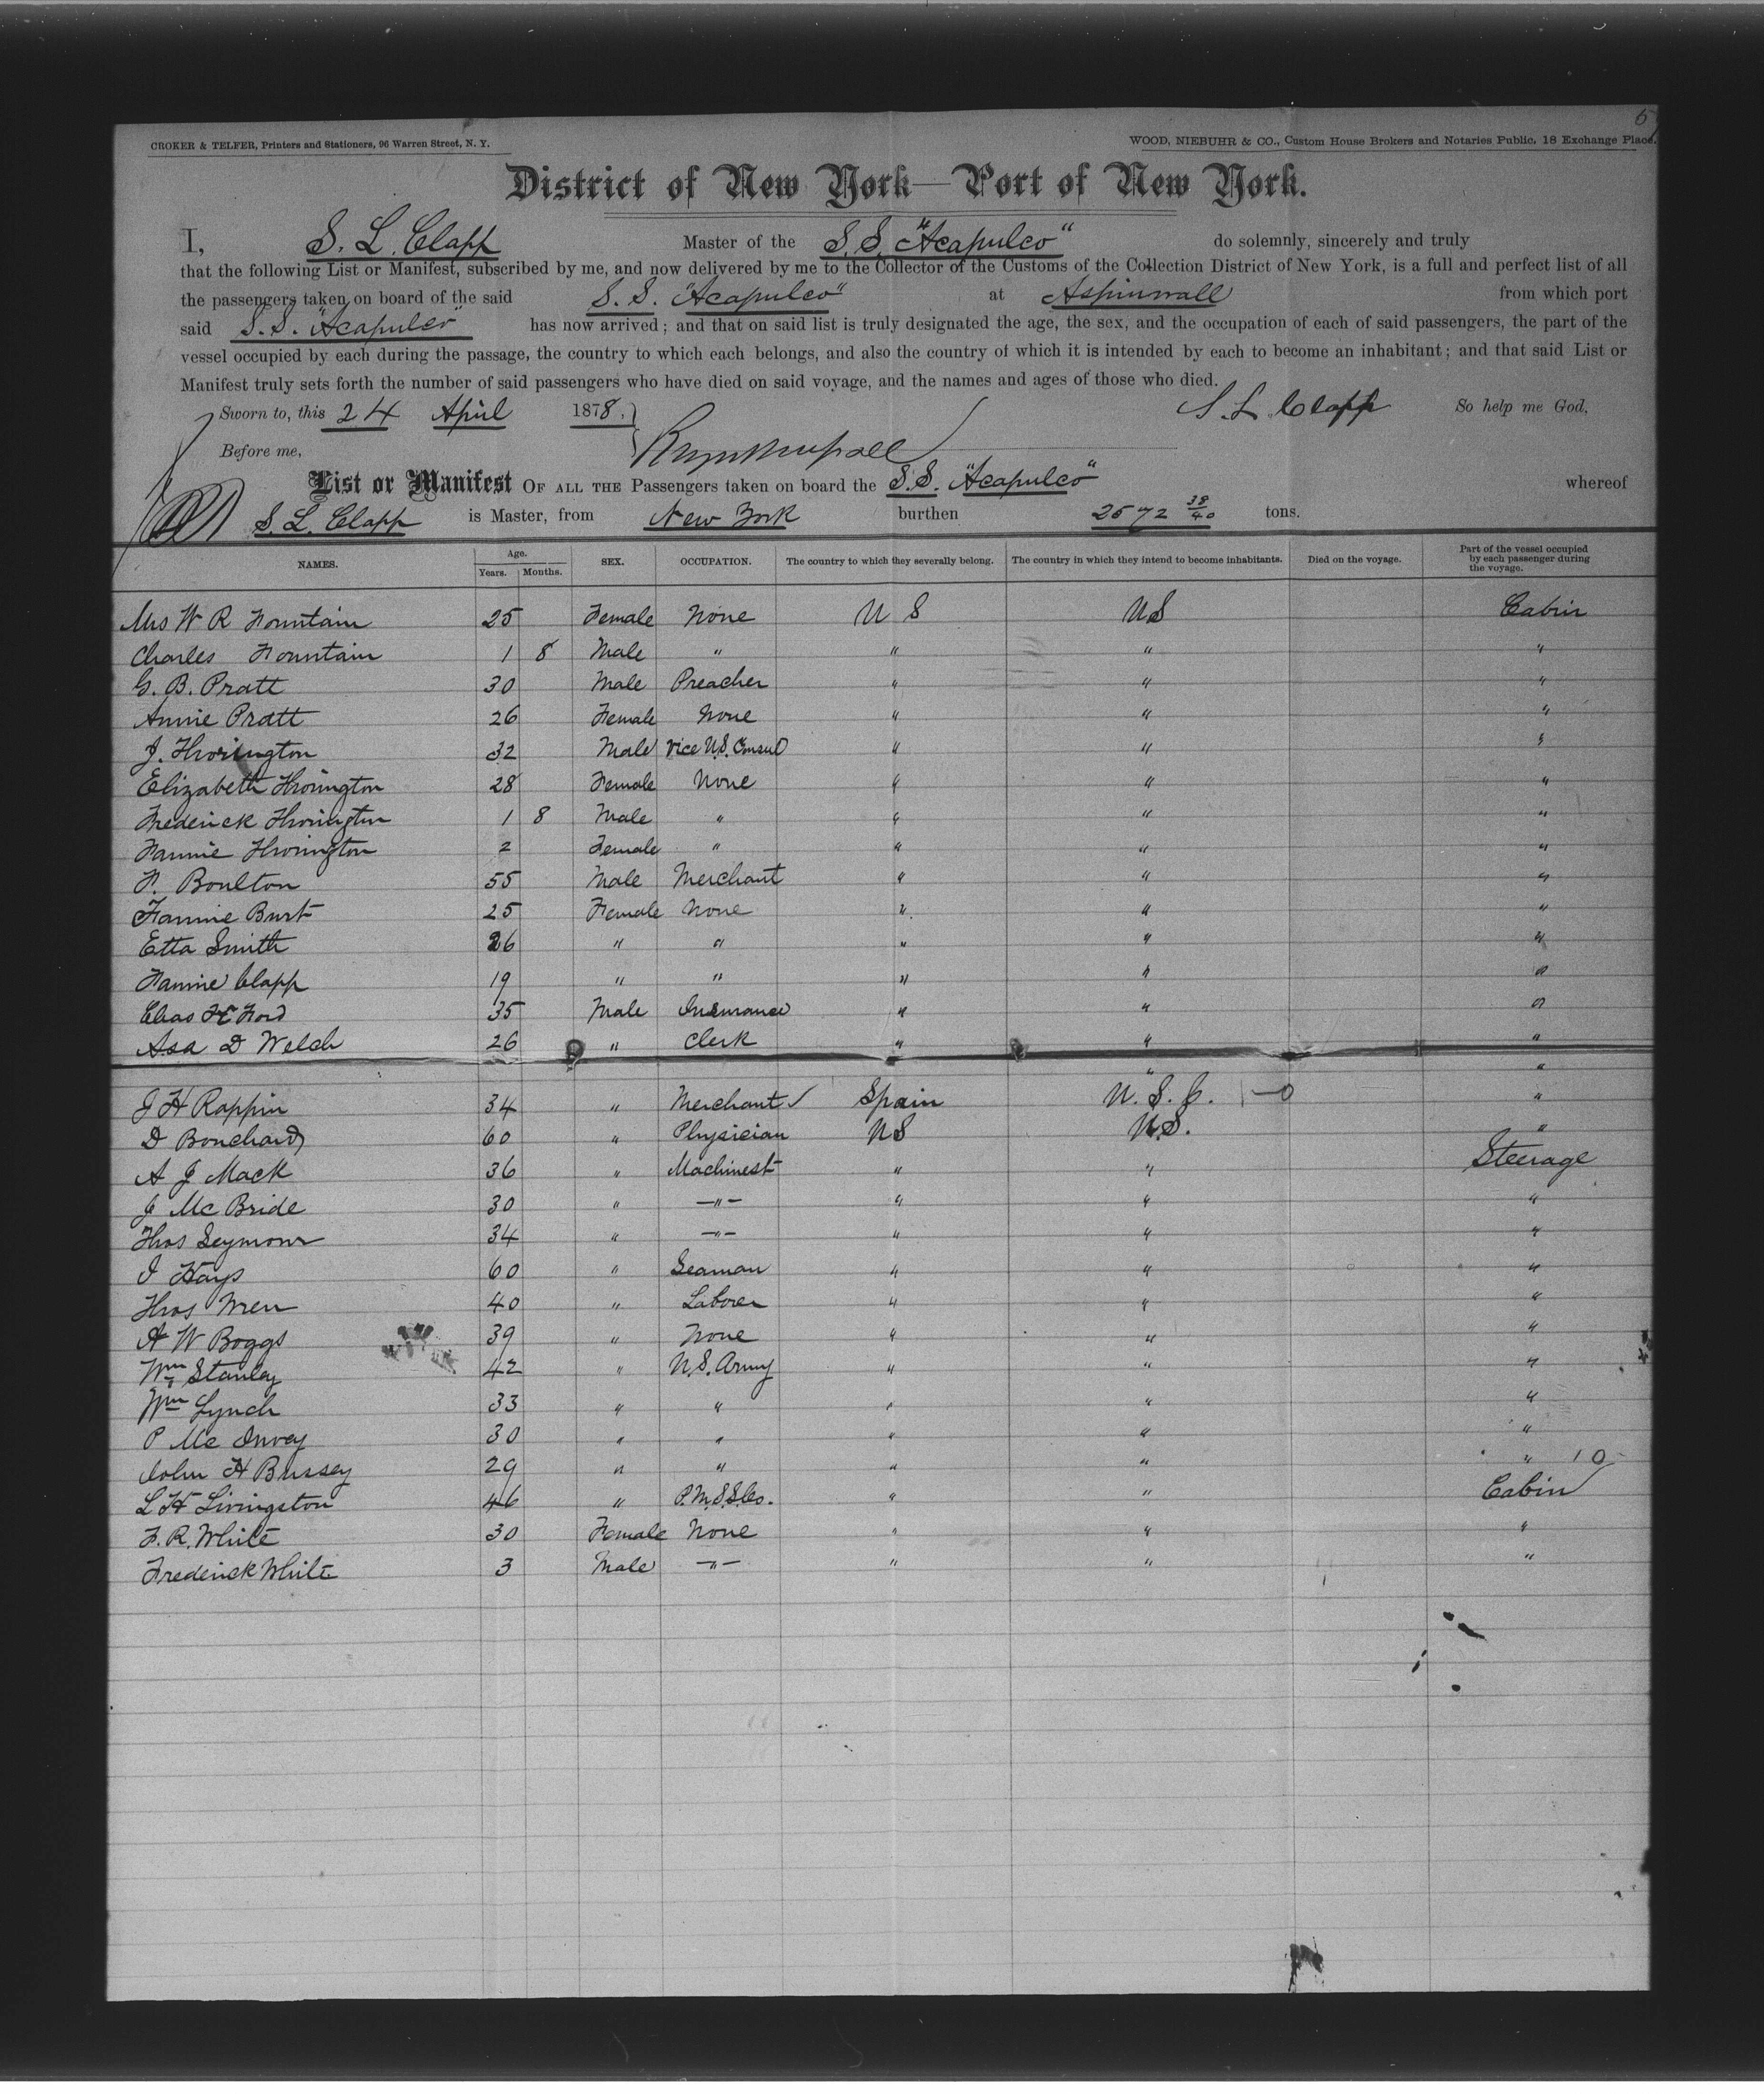 5
CROKER & TELFER, Printers and Stationers, 96 Warren Street, N. Y.
WOOD, NIEBUHR & CO., Custom House Brokers and Notaries Public, 18 Exchange Place.
District of New York—Port of New York.
I, S. L. Clapp Master of the S. S. "Acapulco" do solemnly, sincerely and truly
that the following List or Manifest, subscribed by me, and now delivered by me to the Collector of the Customs of the Collection District of New York, is a full and perfect list of all
the passengers taken on board of the said S. S. "Acapulco" at Aspinwall from which port
said S. S. "Acapulco" has now arrived; and that on said list is truly designated the age, the sex, and the occupation of each of said passengers, the part of the
vessel occupied by each during the passage, the country to which each belongs, and also the country of which it is intended by each to become an inhabitant; and that said List or
Manifest truly sets forth the number of said passengers who have died on said voyage, and the names and ages of those who died.
Sworn to, this 24 April 1878. S. L. Clapp So help me God,
Before me,
List or Manifest OF ALL THE Passengers taken on board the S.S. "Acapulco" whereof
S. L. Clapp is Master, from New York burthen 2572 38/40 tons.
NAMES. Age. Years. Months. SEX. OCCUPATION. The country to which they severally belong. The country in which they intend to become inhabitants. Died on the voyage. Part of the vessel occupied by each passenger during the voyage.
Mrs W R Fountain 25 Female None U S US Cabin
Charles Fountain 1 8 Male " " " "
G. B. Pratt 30 Male Preacher " " "
Annie Pratt 26 Female None " " "
J. Thorington 32 Male Vice U.S. Consul " " "
Elizabeth Thorington 28 Female None " " "
Frederick Thorington 1 8 Male " " " "
Fannie Thorington 2 Female " " " "
F. Boulton 55 Male Merchant " " "
Fannie Burt 25 Female None " " "
Etta Smith 26 " " " " "
Fannie Clapp 19 " " " " "
Chas Ford 35 Male Insurance " " "
Asa D Welch 26 " Clerk " " "
" "
J H Rappin 34 " Merchant ✓ Spain U. S. C. 1—0 "
D Bouchard 60 " Physician US U.S. "
A J Mack 36 " Machinest " " Steerage
J Mc Bride 30 " —"— " " "
Thos Seymour 34 " —"— " " "
J Hays 60 " Seaman " " "
Thos Wren 40 " Laborer " " "
A W Boggs 39 " None " " "
Wm Stanley 42 " U.S. Army " " "
Wm Lynch 33 " " " " "
P Mc 30 " " " " "
John H Bussey 29 " " " " " 10
L H Livingston 46 " P.M.S.S.Co. " " Cabin
F. R. White 30 Female None " " "
Frederick White 3 Male —"— " " "